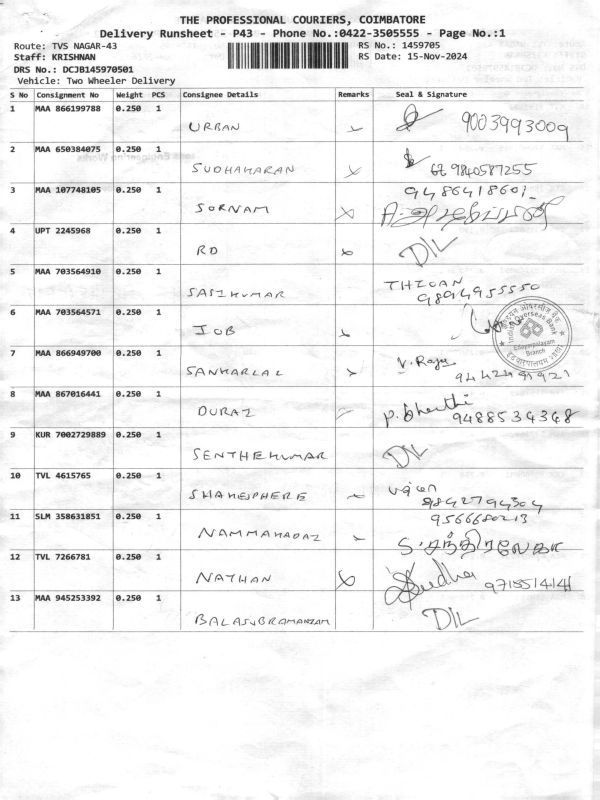 THE PROFESSIONAL COURIERS, COIMBATORE
Delivery Runsheet - P43 - Phone No.:0422-3505555 - Page No.:1
Route: TVS NAGAR-43 RS No.: 1459705
Staff: KRISHNAN RS Date: 15-Nov-2024
DRS No.: DCJB145970501
Vehicle: Two Wheeler Delivery
S No Consignment No Weight PCS Consignee Details Remarks Seal & Signature
1 MAA 866199788 0.250 1
URBAN 9003993009
2 MAA 650384075 0.250 1
SUDHAKARAN 9840587255
3 MAA 107748105 0.250 1 9486418601
SORNAM
4 UPT 2245968 0.250 1
RD D/L
5 MAA 703564910 0.250 1 THIVAN
SASIKUMAR 9894955550
6 MAA 703564571 0.250 1
IOB Indian Overseas Bank
Branch
7 MAA 866949700 0.250 1 V. Raju
SANKARLAL
8 MAA 867016441 0.250 1 P. Bharthi
DURAI 9488534348
9 KUR 7002729889 0.250 1
SENTHEKUMAR D/L
10 TVL 4615765 0.250 1
SHAKESPHERE 9842794304
11 SLM 358631851 0.250 1 9566680213
NAMMAKADAI S. சந்திரலேகா
12 TVL 7266781 0.250 1
NATHAN Sudha 9715514141
13 MAA 945253392 0.250 1
BALASUBRAMANIAM D/L